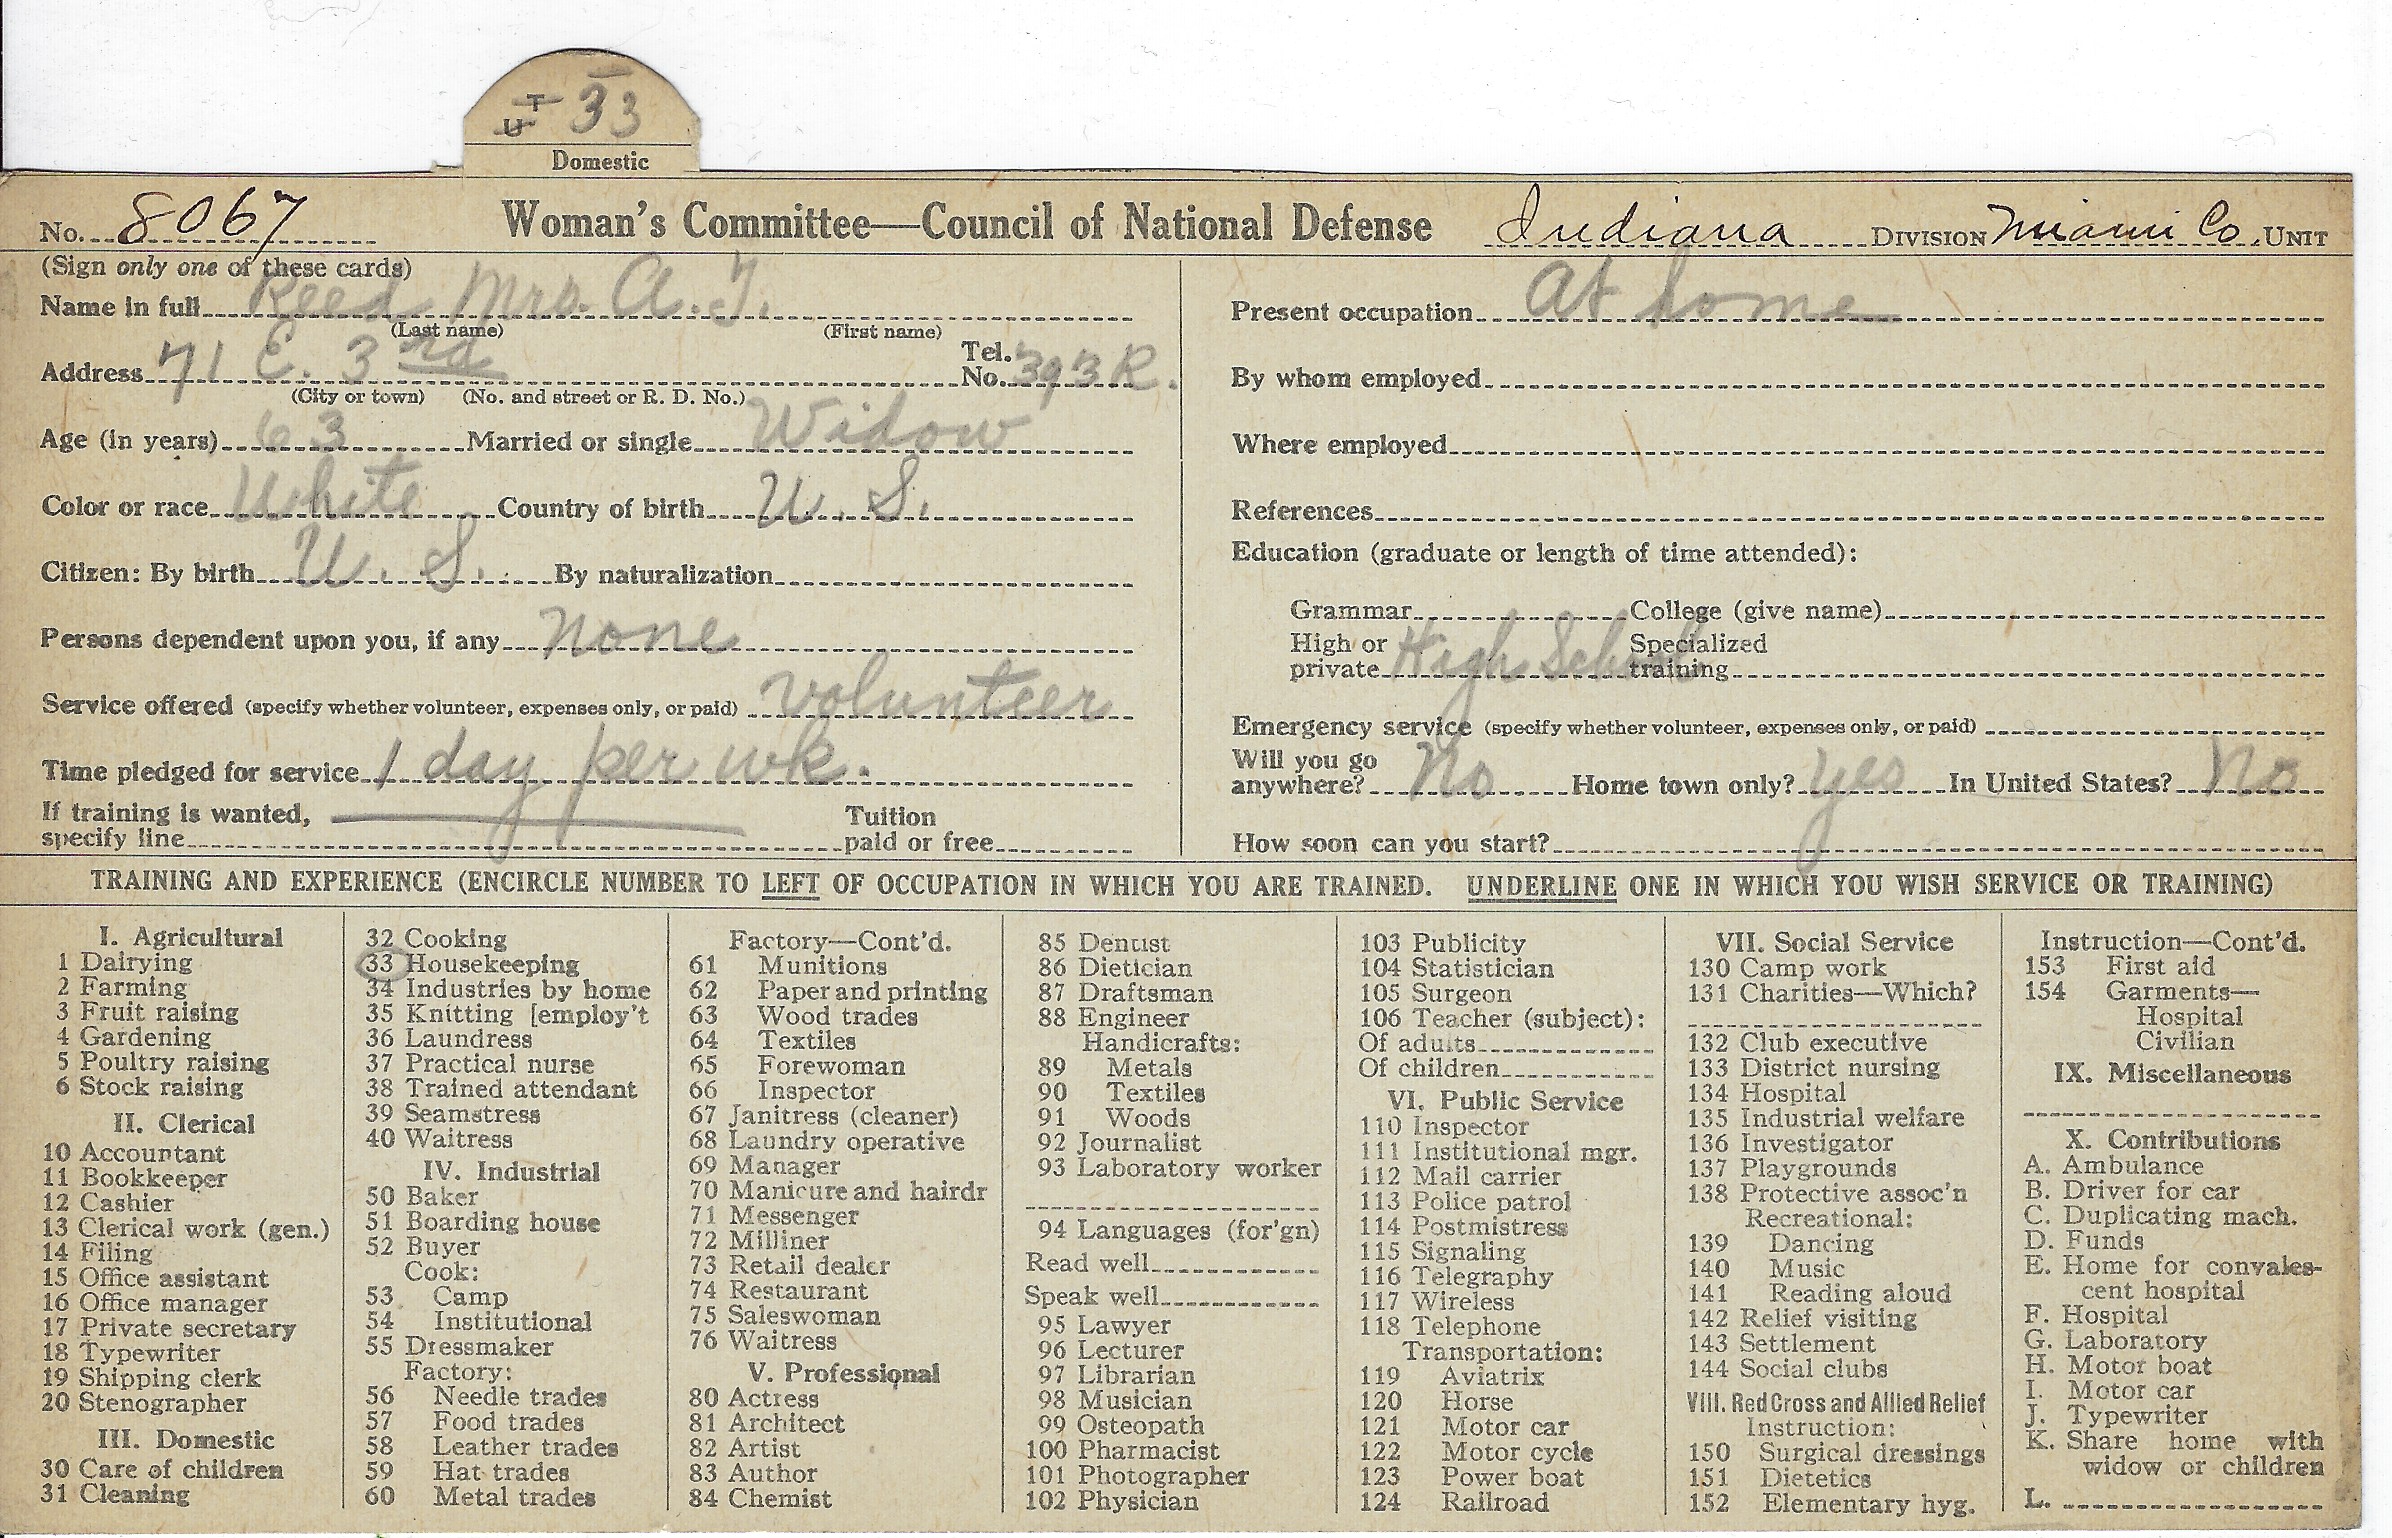 T
U 33
Domestic
No. 8067 Woman's Committee—Council of National Defense Indiana DIVISION Miami Co. UNIT
(Sign only one of these cards)
Name in full Reed Mrs. A. J.
(Last name) (First name)
Address 71 E. 3rd Tel. No. 393R.
(City or town) (No. and street or R. D. No.)
Age (in years) 63 Married or single Widow
Color or race White Country of birth U. S.
Citizen: By birth U. S. By naturalization
Persons dependent upon you, if any none
Service offered (specify whether volunteer, expenses only, or paid) volunteer
Time pledged for service 1 day per wk.
If training is wanted, specify line Tuition paid or free
Present occupation At home
By whom employed
Where employed
References
Education (graduate or length of time attended):
Grammar College (give name)
High or private High School Specialized training
Emergency service (specify whether volunteer, expenses only, or paid)
Will you go anywhere? No Home town only? yes In United States? No
How soon can you start?
TRAINING AND EXPERIENCE (ENCIRCLE NUMBER TO LEFT OF OCCUPATION IN WHICH YOU ARE TRAINED. UNDERLINE ONE IN WHICH YOU WISH SERVICE OR TRAINING)
I. Agricultural
1 Dairying
2 Farming
3 Fruit raising
4 Gardening
5 Poultry raising
6 Stock raising
II. Clerical
10 Accountant
11 Bookkeeper
12 Cashier
13 Clerical work (gen.)
14 Filing
15 Office assistant
16 Office manager
17 Private secretary
18 Typewriter
19 Shipping clerk
20 Stenographer
III. Domestic
30 Care of children
31 Cleaning
32 Cooking
33 Housekeeping
34 Industries by home
35 Knitting [employ't
36 Laundress
37 Practical nurse
38 Trained attendant
39 Seamstress
40 Waitress
IV. Industrial
50 Baker
51 Boarding house
52 Buyer
Cook:
53 Camp
54 Institutional
55 Dressmaker
Factory:
56 Needle trades
57 Food trades
58 Leather trades
59 Hat trades
60 Metal trades
Factory—Cont'd.
61 Munitions
62 Paper and printing
63 Wood trades
64 Textiles
65 Forewoman
66 Inspector
67 Janitress (cleaner)
68 Laundry operative
69 Manager
70 Manicure and hairdr
71 Messenger
72 Milliner
73 Retail dealer
74 Restaurant
75 Saleswoman
76 Waitress
V. Professional
80 Actress
81 Architect
82 Artist
83 Author
84 Chemist
85 Dentist
86 Dietician
87 Draftsman
88 Engineer
Handicrafts:
89 Metals
90 Textiles
91 Woods
92 Journalist
93 Laboratory worker
94 Languages (for'gn)
Read well
Speak well
95 Lawyer
96 Lecturer
97 Librarian
98 Musician
99 Osteopath
100 Pharmacist
101 Photographer
102 Physician
103 Publicity
104 Statistician
105 Surgeon
106 Teacher (subject):
Of adults
Of children
VI. Public Service
110 Inspector
111 Institutional mgr.
112 Mail carrier
113 Police patrol
114 Postmistress
115 Signaling
116 Telegraphy
117 Wireless
118 Telephone
Transportation:
119 Aviatrix
120 Horse
121 Motor car
122 Motor cycle
123 Power boat
124 Railroad
VII. Social Service
130 Camp work
131 Charities—Which?
132 Club executive
133 District nursing
134 Hospital
135 Industrial welfare
136 Investigator
137 Playgrounds
138 Protective assoc'n
Recreational:
139 Dancing
140 Music
141 Reading aloud
142 Relief visiting
143 Settlement
144 Social clubs
VIII. Red Cross and Allied Relief
Instruction:
150 Surgical dressings
151 Dietetics
152 Elementary hyg.
Instruction—Cont'd.
153 First aid
154 Garments—
Hospital
Civilian
IX. Miscellaneous
X. Contributions
A. Ambulance
B. Driver for car
C. Duplicating mach.
D. Funds
E. Home for convales-
cent hospital
F. Hospital
G. Laboratory
H. Motor boat
I. Motor car
J. Typewriter
K. Share home with
widow or children
L.